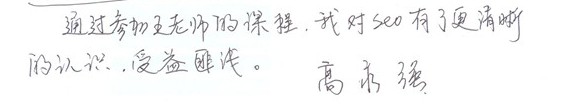 通过参加王老师的课程，我对seo有了更清晰
的认识，受益匪浅。 高永强